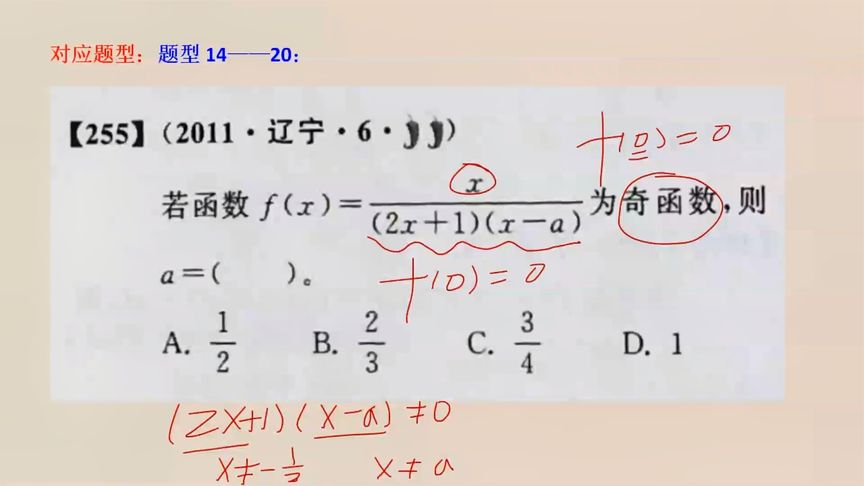 对应题型：题型 14——20：
【255】(2011·辽宁·6·)
f(0)=0
若函数 f(x)=x/((2x+1)(x-a)) 为奇函数,则
a=( )。
f(0)=0
A. 1/2 B. 2/3 C. 3/4 D. 1
(2x+1)(x-a)≠0
x≠-1/2 x≠a